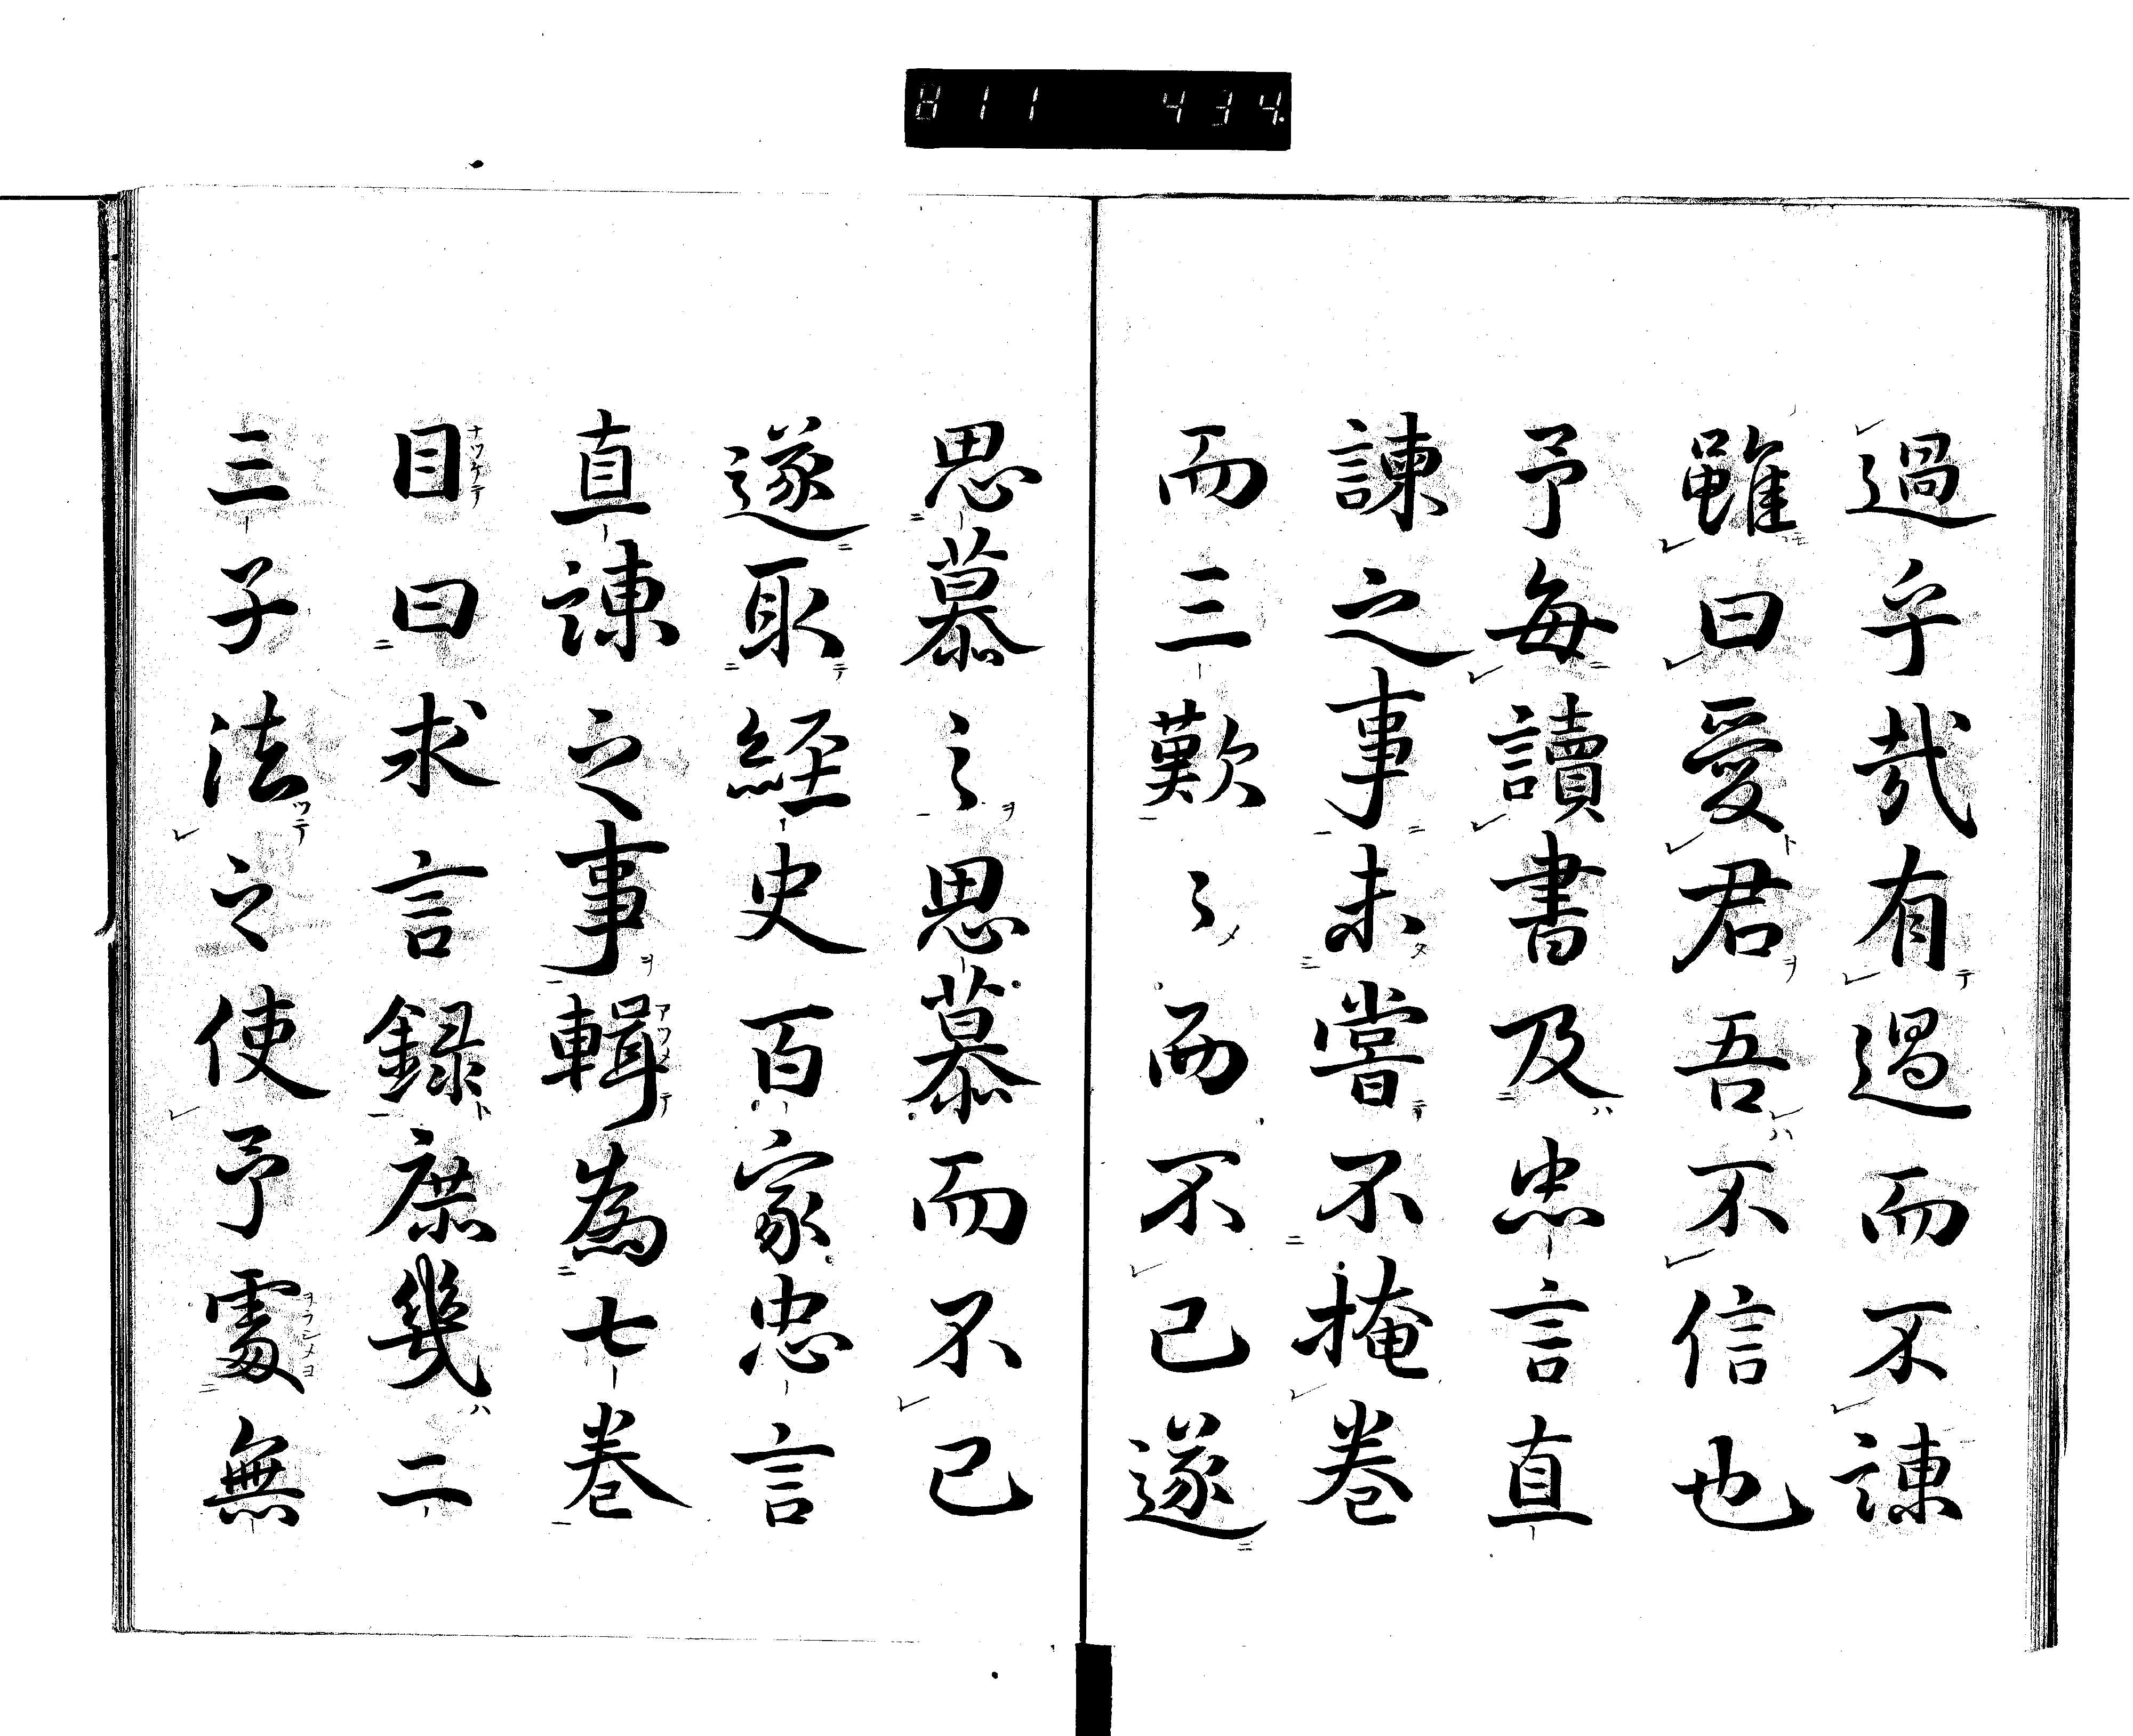 811 434
過乎哉有過而不諌
雖曰愛君吾不信也
予毎讀書及忠言直
諫之事未嘗不掩巻
而三歎〻而不已遂
思慕之思慕而不已
遂取経史百家忠言
直諌之事輯為七巻
目曰求言録庶幾二
三子法之使予處無